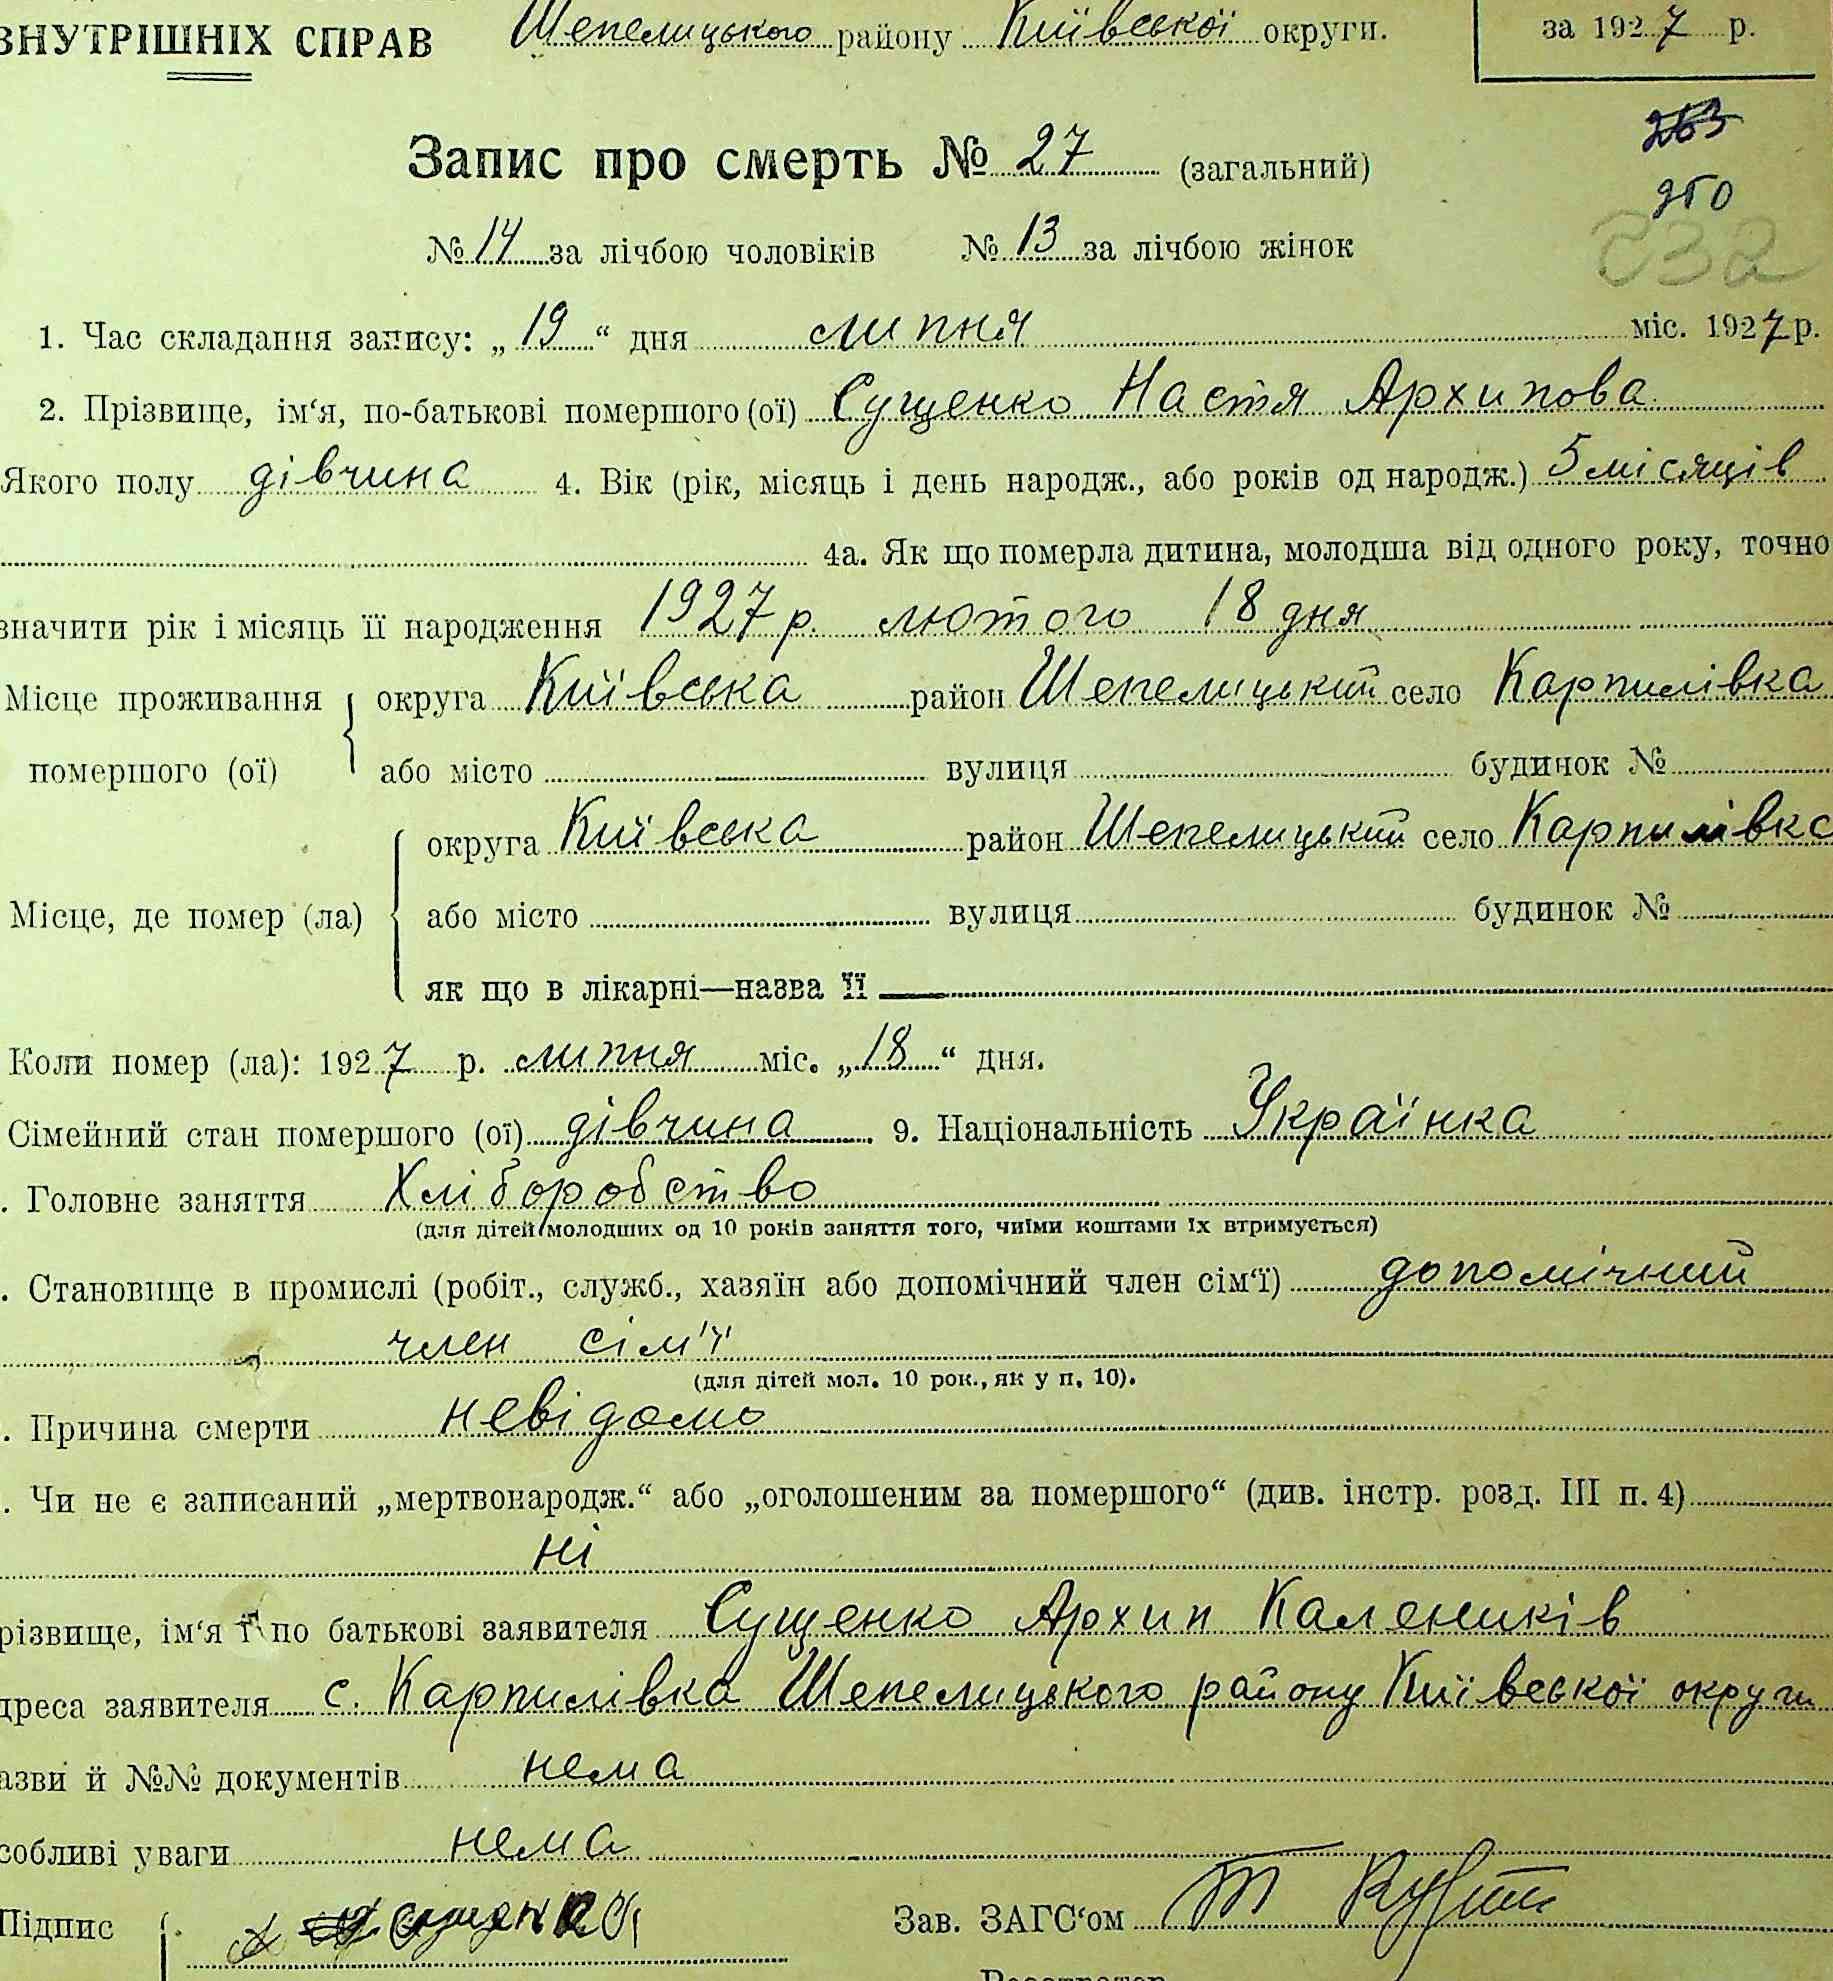 ВНУТРІШНІХ СПРАВ Шепелицького району Київської округи. за 1927 р.
263
Запис про смерть № 27 (загальний)
250
№ 14 за лічбою чоловіків № 13 за лічбою жінок
232
1. Час складання запису: „19“ дня липня міс. 1927 р.
2. Прізвище, ім‘я, по-батькові помершого (ої) Сущенко Настя Архипова
Якого полу дівчина 4. Вік (рік, місяць і день народж., або років од народж.) 5 місяців
4а. Як що померла дитина, молодша від одного року, точно
значити рік і місяць її народження 1927 р. лютого 18 дня
Місце проживання округа Київська район Шепелицький село Карпилівка
помершого (ої) або місто вулиця будинок №
округа Київська район Шепелицький село Карпилівка
Місце, де помер (ла) або місто вулиця будинок №
як що в лікарні—назва її
Коли помер (ла): 1927 р. липня міс. „18“ дня.
Сімейний стан помершого (ої) дівчина. 9. Національність Українка
. Головне заняття Хліборобство
(для дітей молодших од 10 років заняття того, чиїми коштами їх втримується)
. Становище в промислі (робіт., служб., хазяїн або допомічний член сім‘ї) допомічний
член сім'ї
(для дітей мол. 10 рок., як у п. 10).
. Причина смерти невідомо
. Чи не є записаний „мертвонародж.“ або „оголошеним за помершого“ (див. інстр. розд. III п. 4)
ні
різвище, ім‘я ї по батькові заявителя Сущенко Архип Калеників
дреса заявителя с. Карпилівка Шепелицького району Київської округи
азви й №№ документів нема
собливі уваги нема
Підпис Зав. ЗАГС‘ом